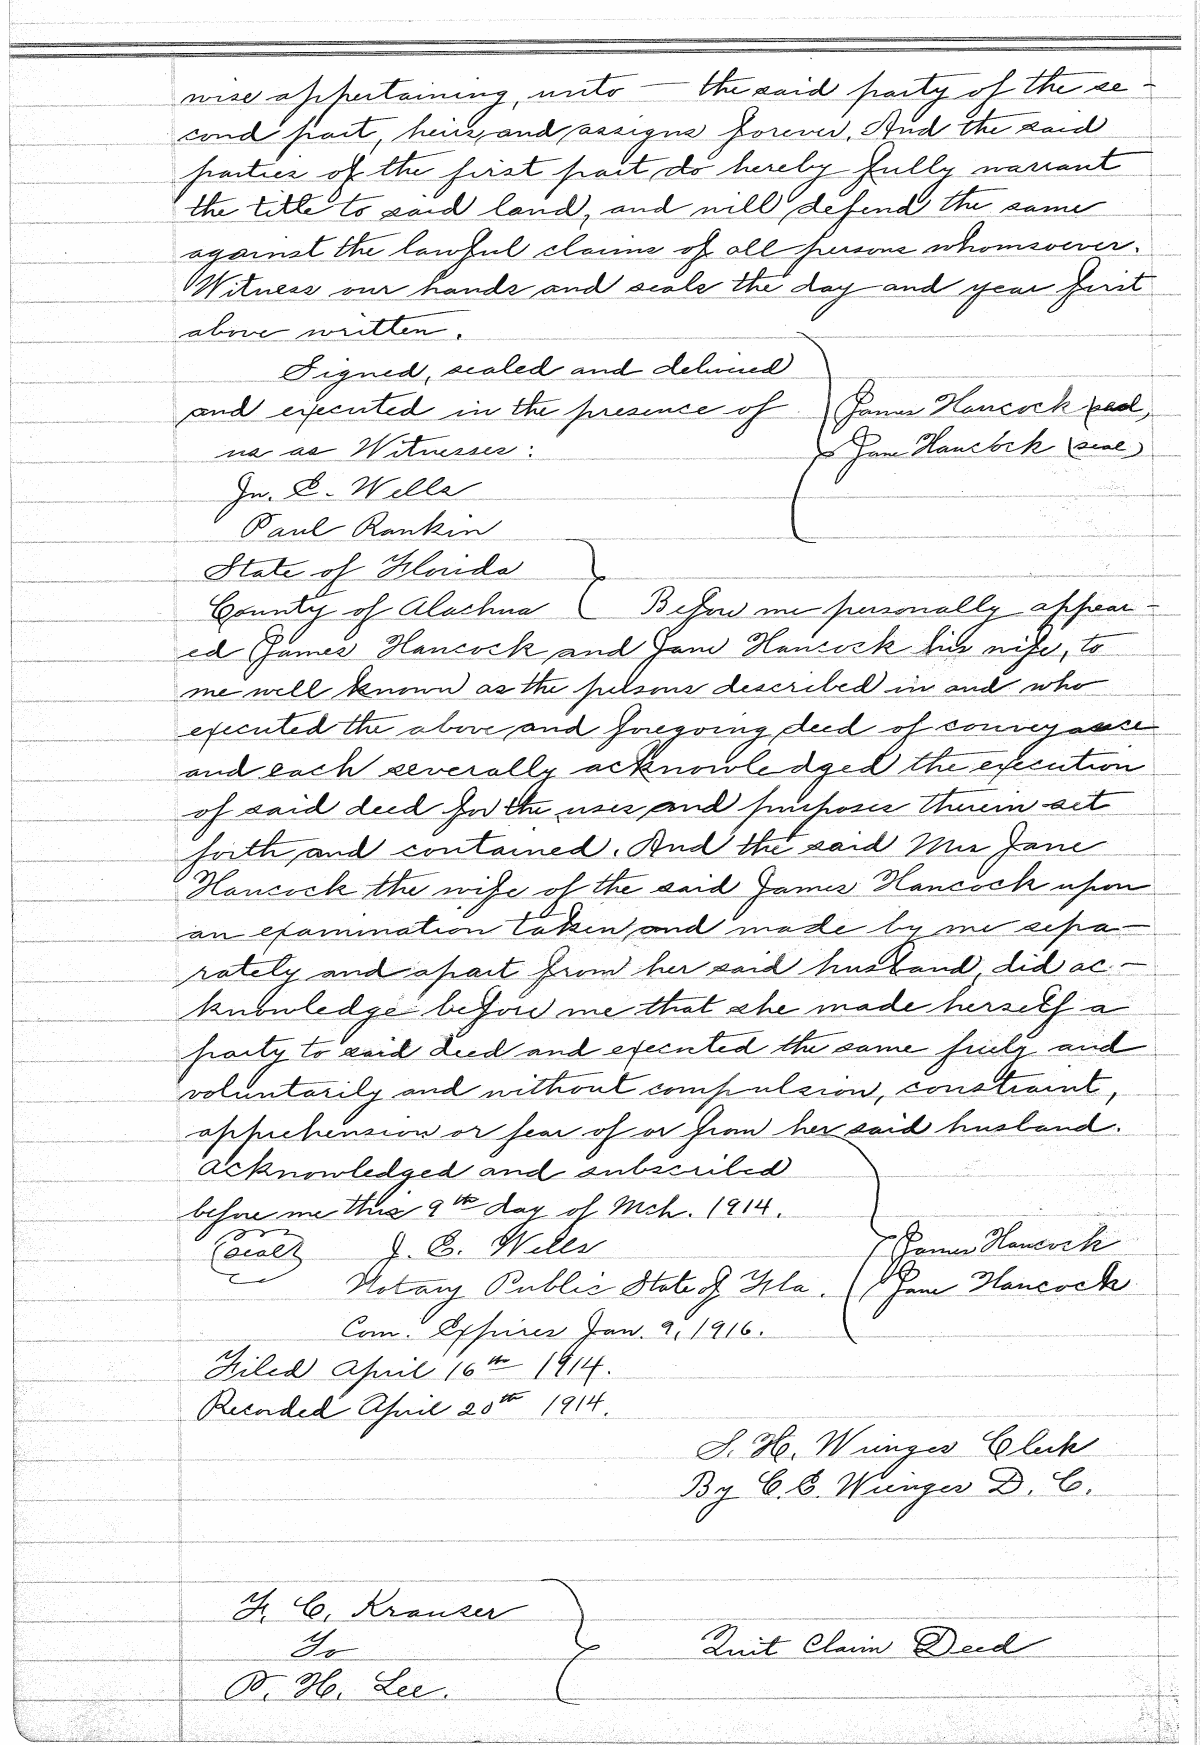 wise appertaining, unto — the said party of the se-
cond part, heirs and assigns forever. And the said
parties of the first part do hereby fully warrant
the title to said land, and will defend the same
against the lawful claims of all persons whomsoever.
Witness our hands and seals the day and year first
above written.
Signed, sealed and delivered
and executed in the presence of James Hancock (seal)
us as Witnesses: Jane Hancock (seal)
Jn. E. Wells
Paul Rankin
State of Florida
County of Alachua Before me personally appear-
ed James Hancock and Jane Hancock his wife, to
me well known as the persons described in and who
executed the above and foregoing deed of conveyance
and each severally acknowledged the execution
of said deed for the uses and purposes therein set
forth and contained. And the said Mrs Jane
Hancock the wife of the said James Hancock upon
an examination taken and made by me sepa-
rately and apart from her said husband, did ac-
knowledge before me that she made herself a
party to said deed and executed the same freely and
voluntarily and without compulsion, constraint,
apprehension or fear of or from her said husband.
Acknowledged and subscribed
before me this 9th day of Mch. 1914.
(seal) J. E. Wells James Hancock
Notary Public State of Fla. Jane Hancock
Com. Expires Jan. 9, 1916.
Filed April 16th 1914.
Recorded April 20th 1914.
S. H. Wienges Clerk
By C. E. Wienges D. C.
F. C. Krauser
To Quit Claim Deed
P. H. Lee.